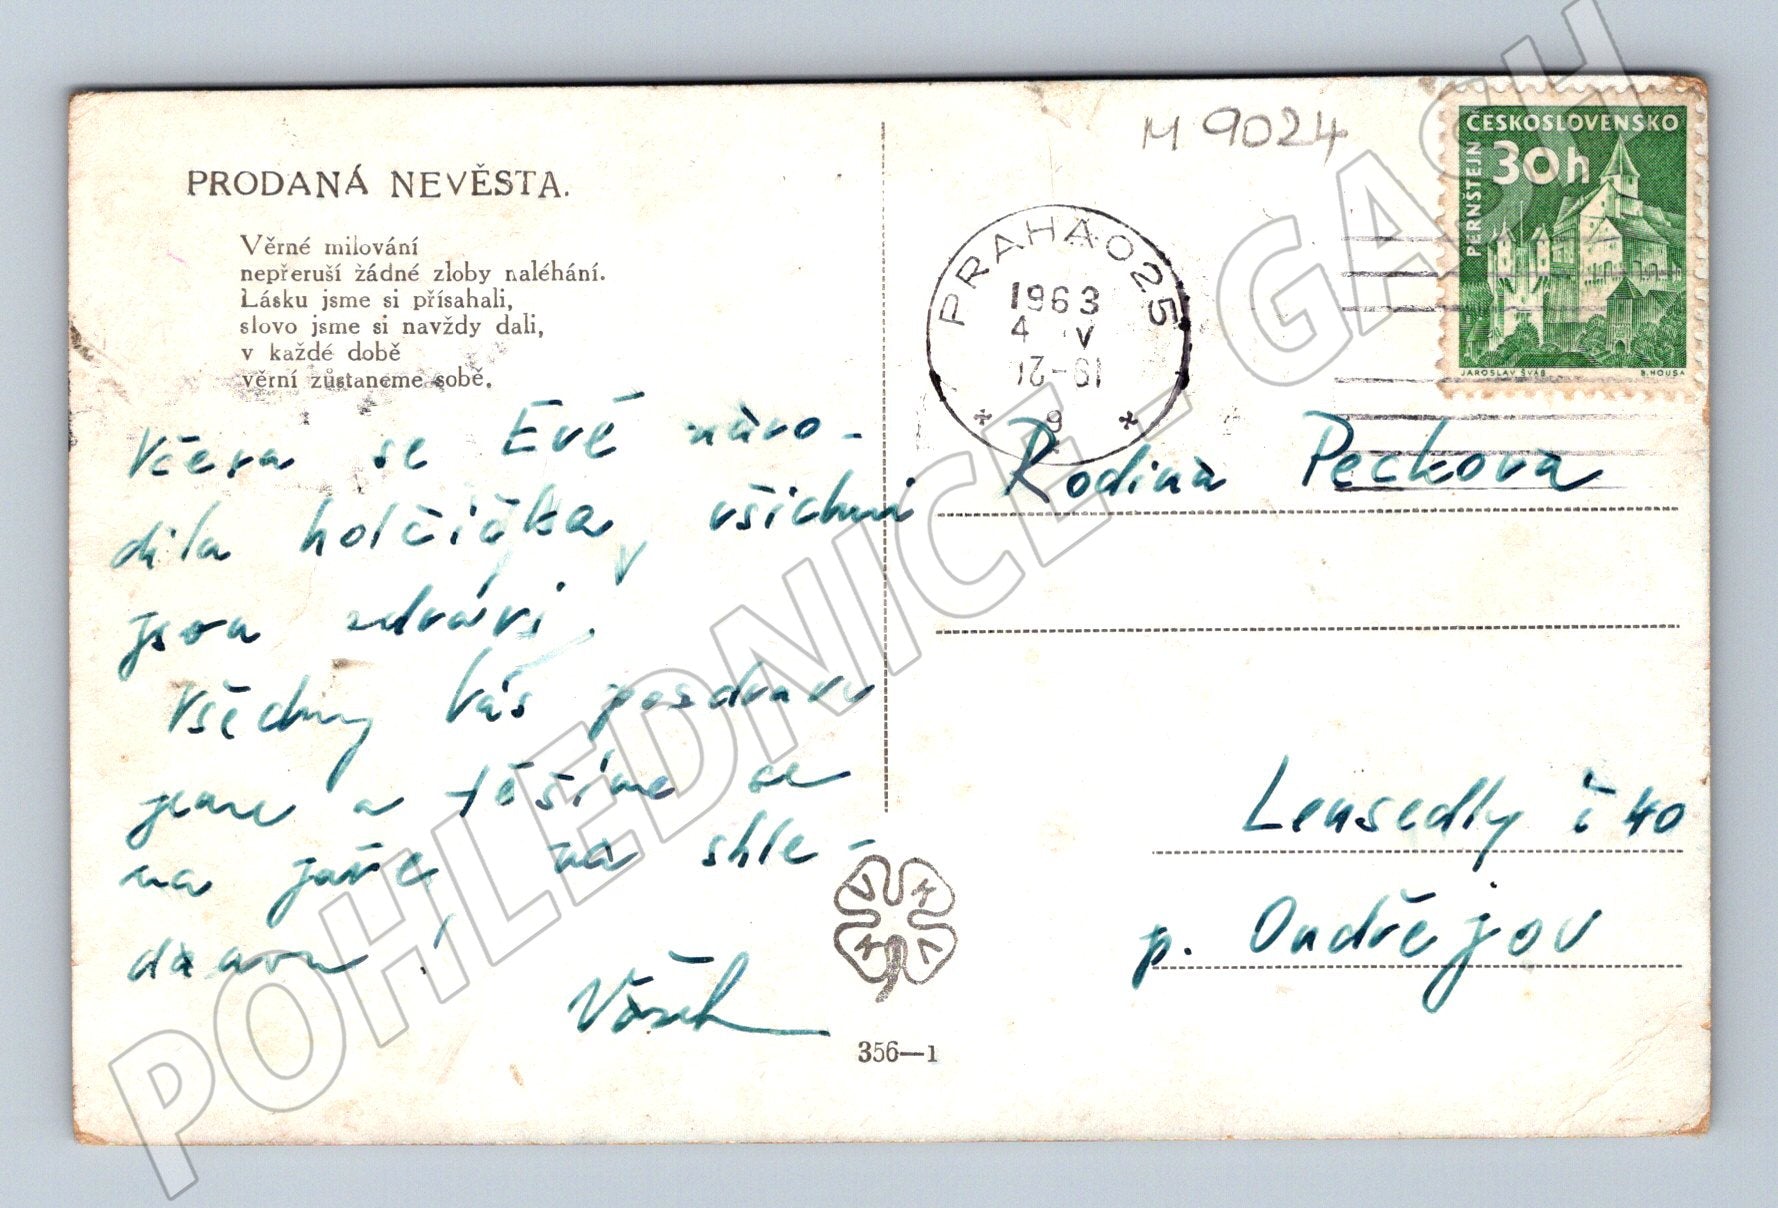 PRODANÁ NEVĚSTA.
Věrné milování
nepřeruší žádné zloby naléhání.
Lásku jsme si přísahali,
slovo jsme si navždy dali,
v každé době
věrní zůstaneme sobě.
Včera se Evě naro-
dila holčička, všichni
jsou zdrávi.
Všechny Vás pozdravu
jeme a těšíme se
na jaře na shle-
danou!
Vašek
M 9024
ČESKOSLOVENSKO
30h
PERNŠTEJN
JAROSLAV ŠVÁB
B. HOUSA
PRAHA 025
1963
4 V
9
Rodina Peckova
Lensedly č 40
p. Ondřejov
V K V K
356—1
POHLEDNICE_GASH